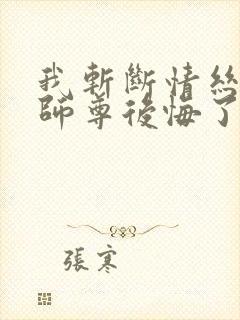 我斬斷情絲
師尊後悔了
張寒